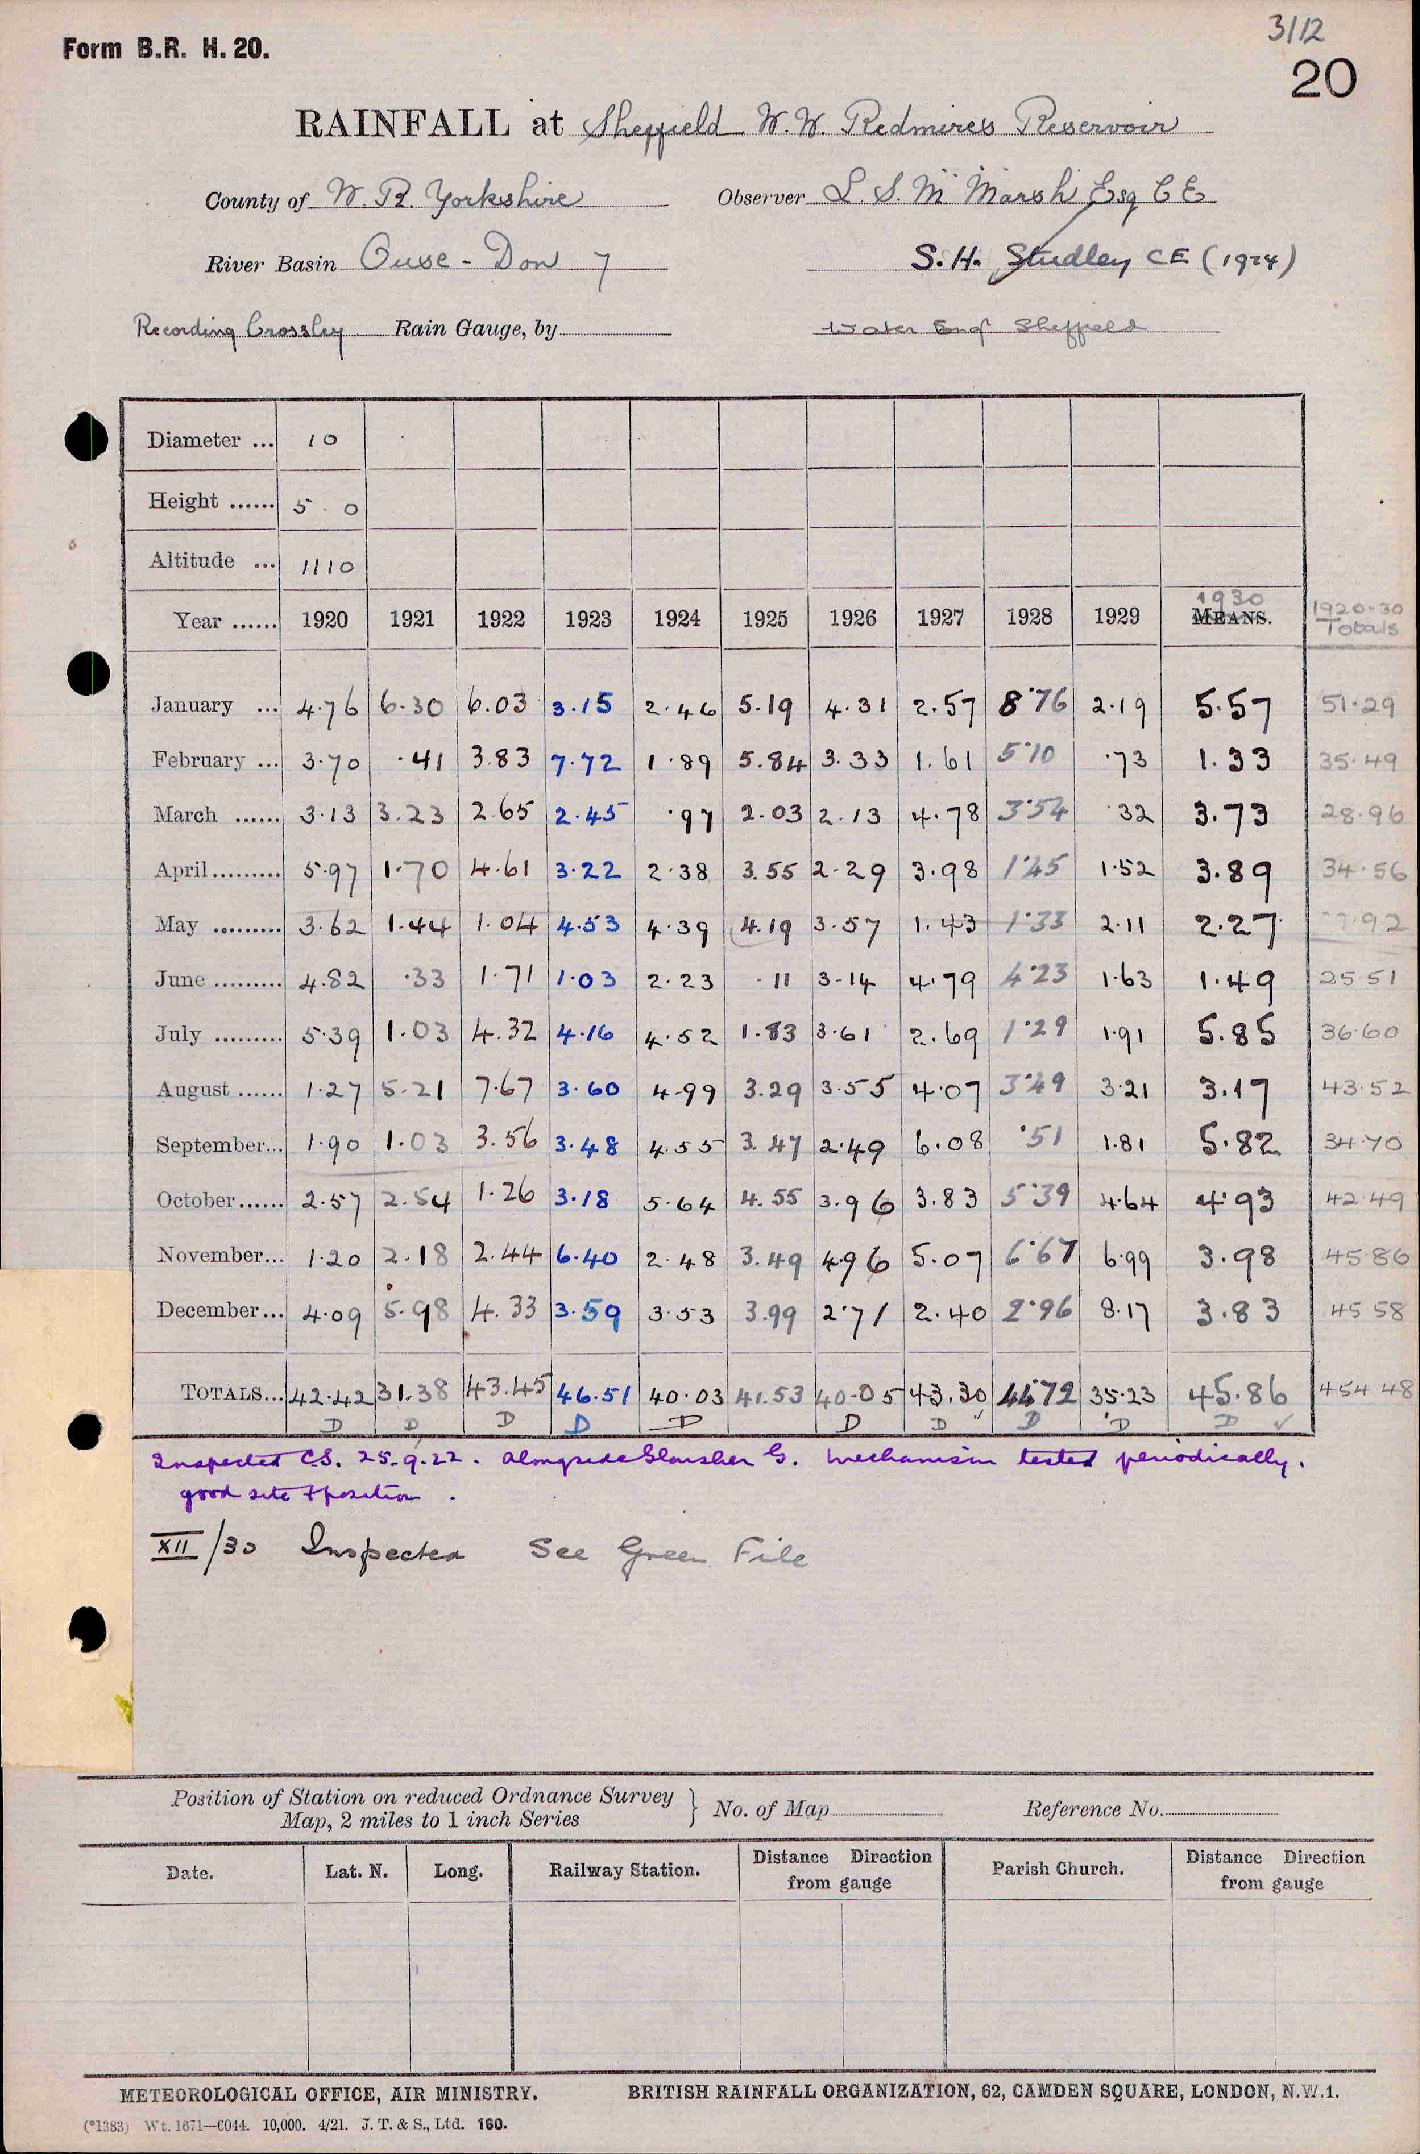 3/12
Form B.R. H. 20.
20
RAINFALL at Sheffield W. W. Redmires Reservoir
County of W. R. Yorkshire Observer L. S. M Marsh Esq C E
River Basin Ouse - Don 7 S. H. Studley CE (1924)
Recording Crossley Rain Gauge, by Water Engr Sheffield
Diameter ... 10
Height ...... 5 . 0
Altitude ... 1110
1930
Year ...... 1920 1921 1922 1923 1924 1925 1926 1927 1928 1929 MEANS. 1920-30 Totals
January ... 4.76 6.30 6.03 3.15 2.46 5.19 4.31 2.57 8.76 2.19 5.57 51.29
February ... 3.70 .41 3.83 7.72 1.89 5.84 3.33 1.61 5.10 .73 1.33 35.49
March ...... 3.13 3.23 2.65 2.45 .97 2.03 2.13 4.78 3.54 .32 3.73 28.96
April ......... 5.97 1.70 4.61 3.22 2.38 3.55 2.29 3.98 1.45 1.52 3.89 34.56
May ......... 3.62 1.44 1.04 4.53 4.39 4.19 3.57 1.43 1.33 2.11 2.27 9.92
June ......... 4.82 .33 1.71 1.03 2.23 .11 3.14 4.79 4.23 1.63 1.49 25.51
July ......... 5.39 1.03 4.32 4.16 4.52 1.83 3.61 2.69 1.29 1.91 5.85 36.60
August ...... 1.27 5.21 7.67 3.60 4.99 3.29 3.55 4.07 3.49 3.21 3.17 43.52
September... 1.90 1.03 3.56 3.48 4.55 3.47 2.49 6.08 .51 1.81 5.82 34.70
October ...... 2.57 2.54 1.26 3.18 5.64 4.55 3.96 3.83 5.39 4.64 4.93 42.49
November... 1.20 2.18 2.44 6.40 2.48 3.49 4.96 5.07 6.67 6.99 3.98 45.86
December... 4.09 5.98 4.33 3.59 3.53 3.99 2.71 2.40 2.96 8.17 3.83 45.58
TOTALS... 42.42 31.38 43.45 46.51 40.03 41.53 40.05 43.30 44.72 35.23 45.86 454.48
D D D D D D D D D D
Inspected C.S. 25.9.22. alongside Glaisher G. Mechanism tested periodically.
good site & position .
XII/30 Inspected See Green File
Position of Station on reduced Ordnance Survey Map, 2 miles to 1 inch Series } No. of Map Reference No.
Date. Lat. N. Long. Railway Station. Distance Direction from gauge Parish Church. Distance Direction from gauge
METEOROLOGICAL OFFICE, AIR MINISTRY. BRITISH RAINFALL ORGANIZATION, 62, CAMDEN SQUARE, LONDON, N.W.1.
(*1383) Wt. 1671—C044. 10,000. 4/21. J. T. & S., Ltd. 160.